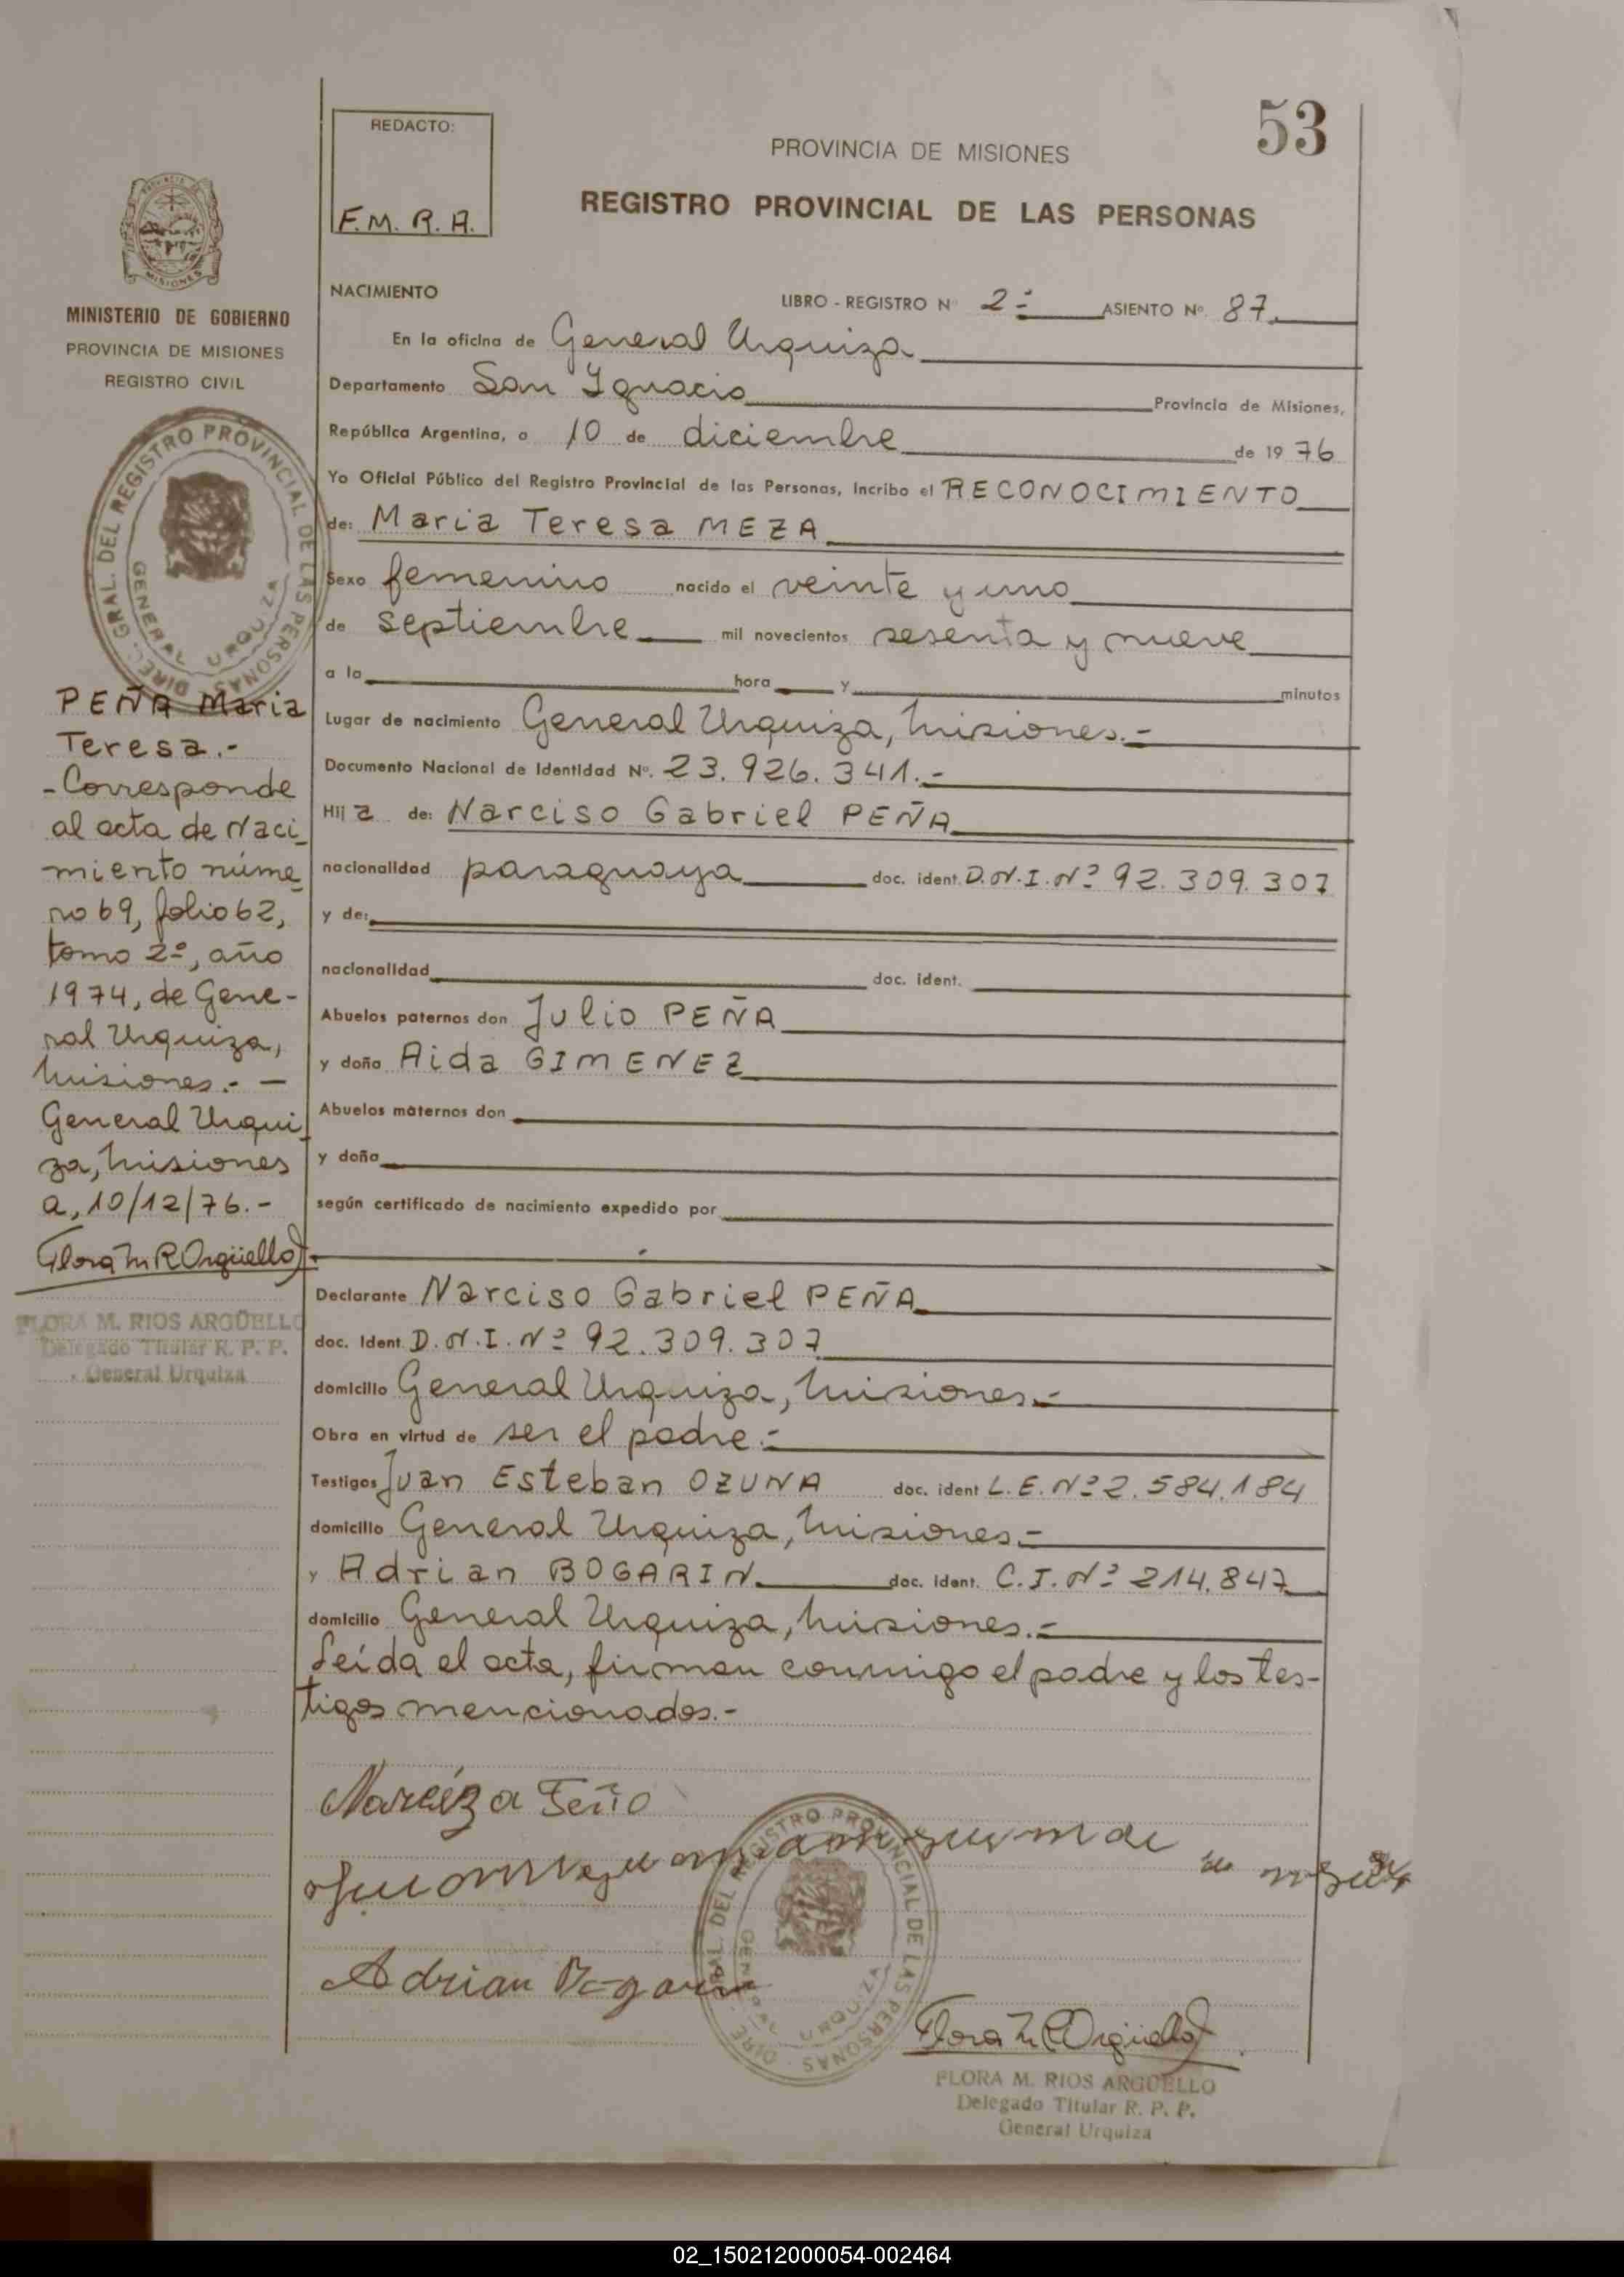 53
REDACTO:
F.M.R.A.
PROVINCIA DE MISIONES
REGISTRO PROVINCIAL DE LAS PERSONAS
MISIONES
MINISTERIO DE GOBIERNO
PROVINCIA DE MISIONES
REGISTRO CIVIL
DIREC. GRAL. DEL REGISTRO PROVINCIAL DE LAS PERSONAS
GENERAL URQUIZA
PEÑA Maria
Teresa.-
-Corresponde
al acta de Naci_
miento núme_
ro 69, folio 62,
tomo 2º, año
1974, de Gene-
ral Urquiza,
Misiones.- -
General Urqui_
za, Misiones
a, 10/12/76.-
Flora M R Argüello
FLORA M. RIOS ARGÜELLO
Delegado Titular R. P. P.
General Urquiza
NACIMIENTO
LIBRO - REGISTRO Nº 2º ASIENTO Nº. 87.
En la oficina de General Urquiza
Departamento San Ignacio Provincia de Misiones,
República Argentina, a 10 de diciembre de 19 76
Yo Oficial Público del Registro Provincial de las Personas, Incribo el RECONOCIMIENTO
de: Maria Teresa MEZA
Sexo femenino nacido el veinte y uno
de septiembre mil novecientos sesenta y nueve
a la hora y minutos
Lugar de nacimiento General Urquiza, Misiones.-
Documento Nacional de Identidad Nº. 23.926.341.-
Hij a de: Narciso Gabriel PEÑA
nacionalidad paraguaya doc. ident. D.N.I.Nº 92.309.307
y de:
nacionalidad doc. ident.
Abuelos paternos don Julio PEÑA
y doña Aida GIMENEZ
Abuelos maternos don
y doña
según certificado de nacimiento expedido por
Declarante Narciso Gabriel PEÑA
doc. Ident D.N.I.Nº 92.309.307
domicilio General Urquiza, Misiones.-
Obra en virtud de ser el padre.-
Testigos Juan Esteban OZUNA doc. ident L.E.Nº 2.584.184
domicilio General Urquiza, Misiones.-
y Adrian BOGARIN doc. Ident. C.I.Nº 214.847
domicilio General Urquiza, Misiones.-
Leída el acta, firman conmigo el padre y los tes-
tigos mencionados.-
Adrian Bogarin
DIREC. GRAL. DEL REGISTRO PROVINCIAL DE LAS PERSONAS
GENERAL URQUIZA
Flora M R Argüello
FLORA M. RIOS ARGÜELLO
Delegado Titular R. P. P.
General Urquiza
02_150212000054-002464